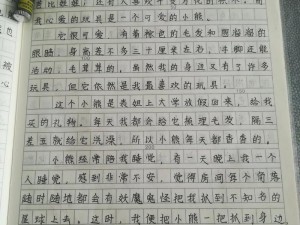 我心爱的玩具是一个可爱的小熊。
它很可爱,有着棕色的毛发和圆溜溜的
眼睛,身高差不多三十厘米左右,手脚还能
活动,毛茸茸的,虽然我的身边有许多
玩具,但是它依然是我最喜欢的玩具。
这个小熊是表姐上大学放假回来,给我
买的礼物,每天我都会给它梳理毛发,隔三
差五就给它洗澡,所以小熊每天都香香的。
小熊经常陪我睡觉,有一天晚上我一个
人睡觉,感到非常不安,觉得房间每个角落
随时随地都会有妖魔鬼怪把我抓到别的
星球上去。这时,我便把小熊一把抓到身边